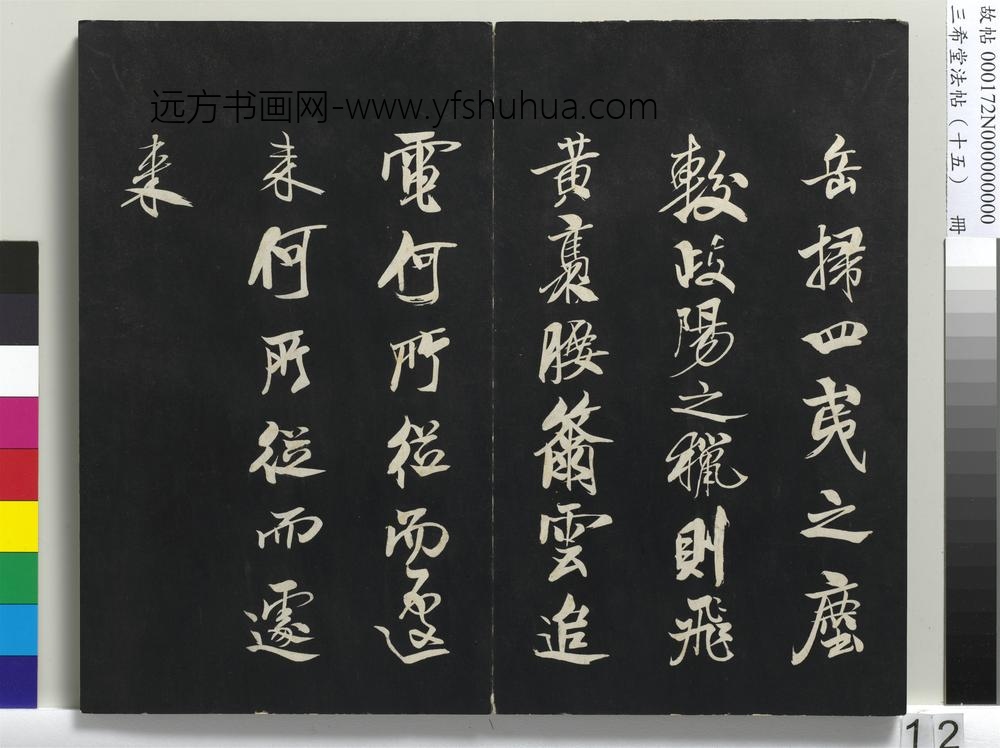 故帖 000172N000000000
三希堂法帖（十五） 冊
远方书画网-www.yfshuhua.com
岳掃四夷之塵
較岐陽之獵則飛
黄褭腰籋雲追
電何所從而遽
来何所從而遽
来
12